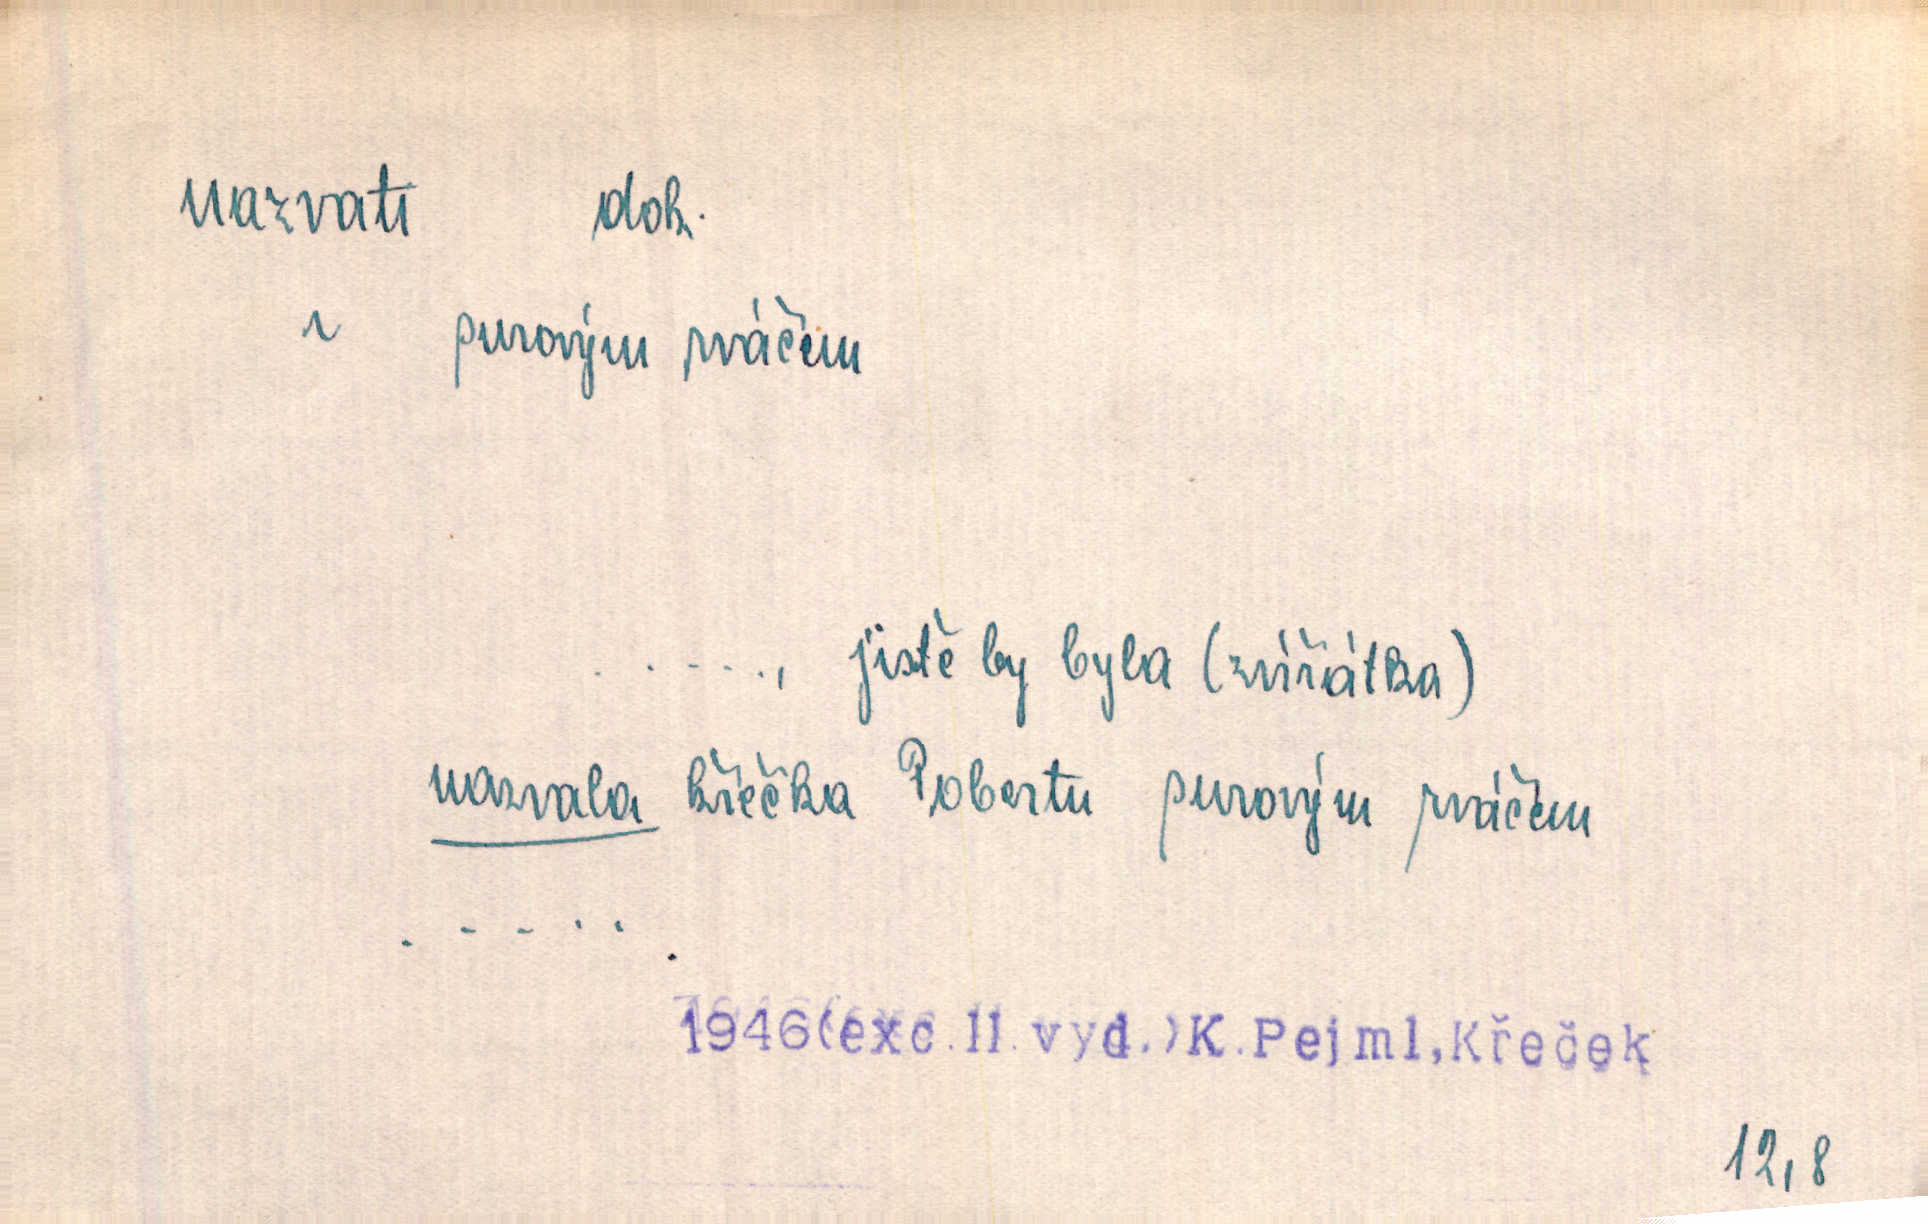 nazvati dok.
~ purovým rváčem
. . - - - ., jistě by byla (zvířátka)
nazvala křečka Robertu purovým rváčem
. - - . . .
1946(exc.II.vyd.)K.Pejml,Křeček
12,8